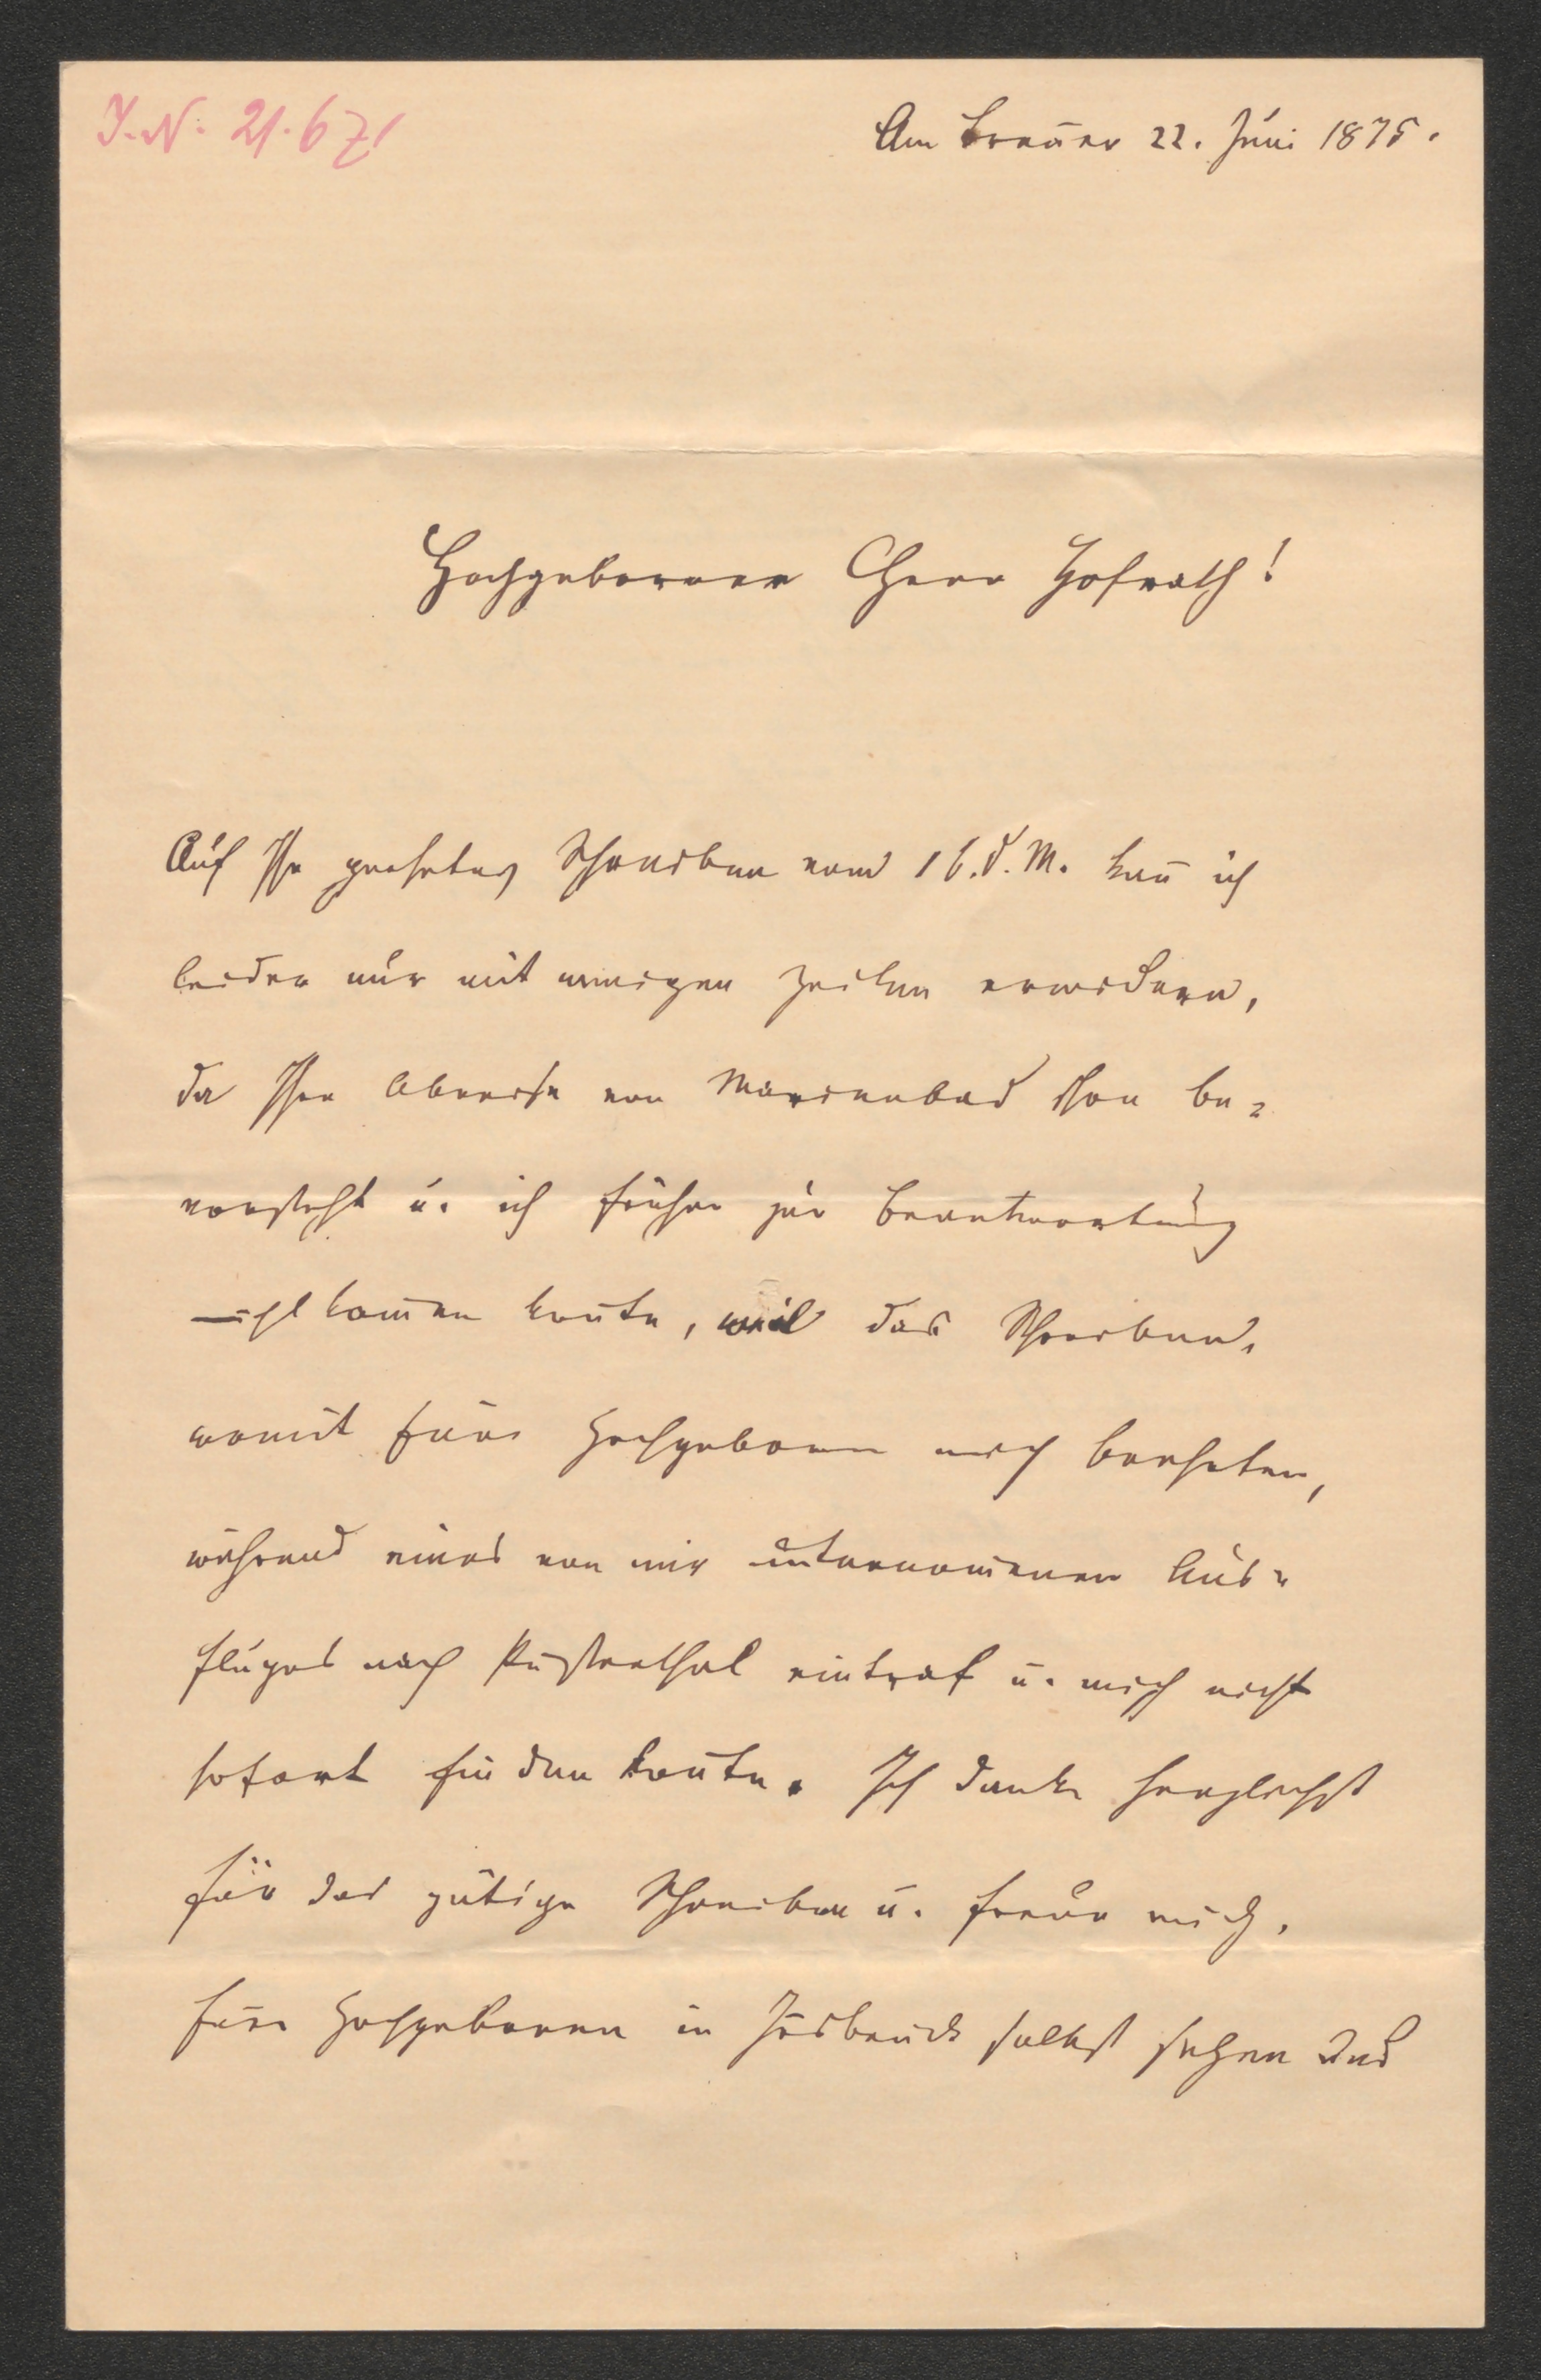 I.N. 21.671
Am Breñer 22. Juni 1875.
Hochgeborner Herr Hofrath!
Auf Ihr geehrtes Schreiben vom 16. d. M. kañ ich
leider nur mit wenigen Zeilen erwidern,
da Ihre Abreise von Marienbad schon be=
vorsteht u. ich früher zur Beantwortung
nicht kom̄en koñte, weil das Schreiben,
womit Euer Hochgeboren mich beehrten,
während eines von mir unternom̄enen Aus=
fluges nach Pusterthal eintraf u. mich nicht
sofort finden koñte. Ich danke herzlichst
für das gütige Schreiben u. freue mich,
Euer Hochgeboren in Iñsbruck selbst sehen und